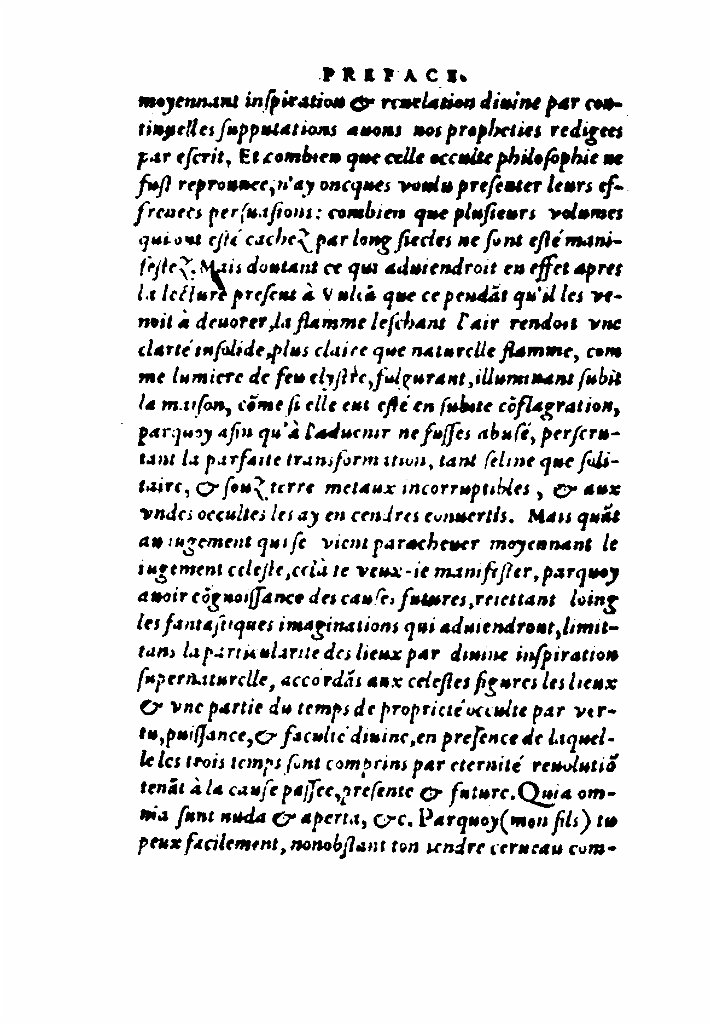 PREFACE.
moyennant inſpiration & reuelation diuine par con-
tinuelles ſupputations auons nos propheties redigees
par eſcrit, Et combien que celle occulte philoſophie ne
fuſt reprouuee, n'ay oncques voulu preſenter leurs ef-
frenees perſuaſions: combien que pluſieurs volumes
qui ont eſté cachez par long ſiecles ne ſont eſté mani-
feſtez. Mais doutant ce qui aduiendroit en effet apres
la lecture preſent à Vulcã que ce pendãt qu'il les ve-
noit à deuorer, la flamme leſchant l'air rendoit vne
clarté inſolide, plus claire que naturelle flamme, com
me lumiere de feu elyſtre, fulgurant, illuminant ſubit
la maiſon, cõme ſi elle eut eſté en ſubite cõflagration,
parquoy afin qu'à l'aduenir ne fuſſes abuſé, perſcru-
tant la parfaite transformation, tant ſeline que ſoli-
taire, & ſouz terre metaux incorruptibles, & aux
vndes occultes les ay en cendres conuertis. Mais quãt
au iugement qui ſe vient paracheuer moyennant le
iugement celeſte, celà te veux-ie manifeſter, parquoy
auoir cõgnoiſſance des cauſes futures, reiettant loing
les fantaſtiques imaginations qui aduiendront, limit-
tans la particularite des lieux par diuine inſpiration
ſupernaturelle, accordãs aux celeſtes figures les lieux
& vne partie du temps de proprieté occulte par ver-
tu, puiſſance, & faculté diuine, en preſence de laquel-
le les trois temps ſont comprins par eternité reuolutiõ
tenãt à la cauſe paſſee, preſente & future. Quia om-
nia ſunt nuda & aperta, &c. Parquoy (mon fils) tu
peux facilement, nonobſtant ton tendre cerueau com-